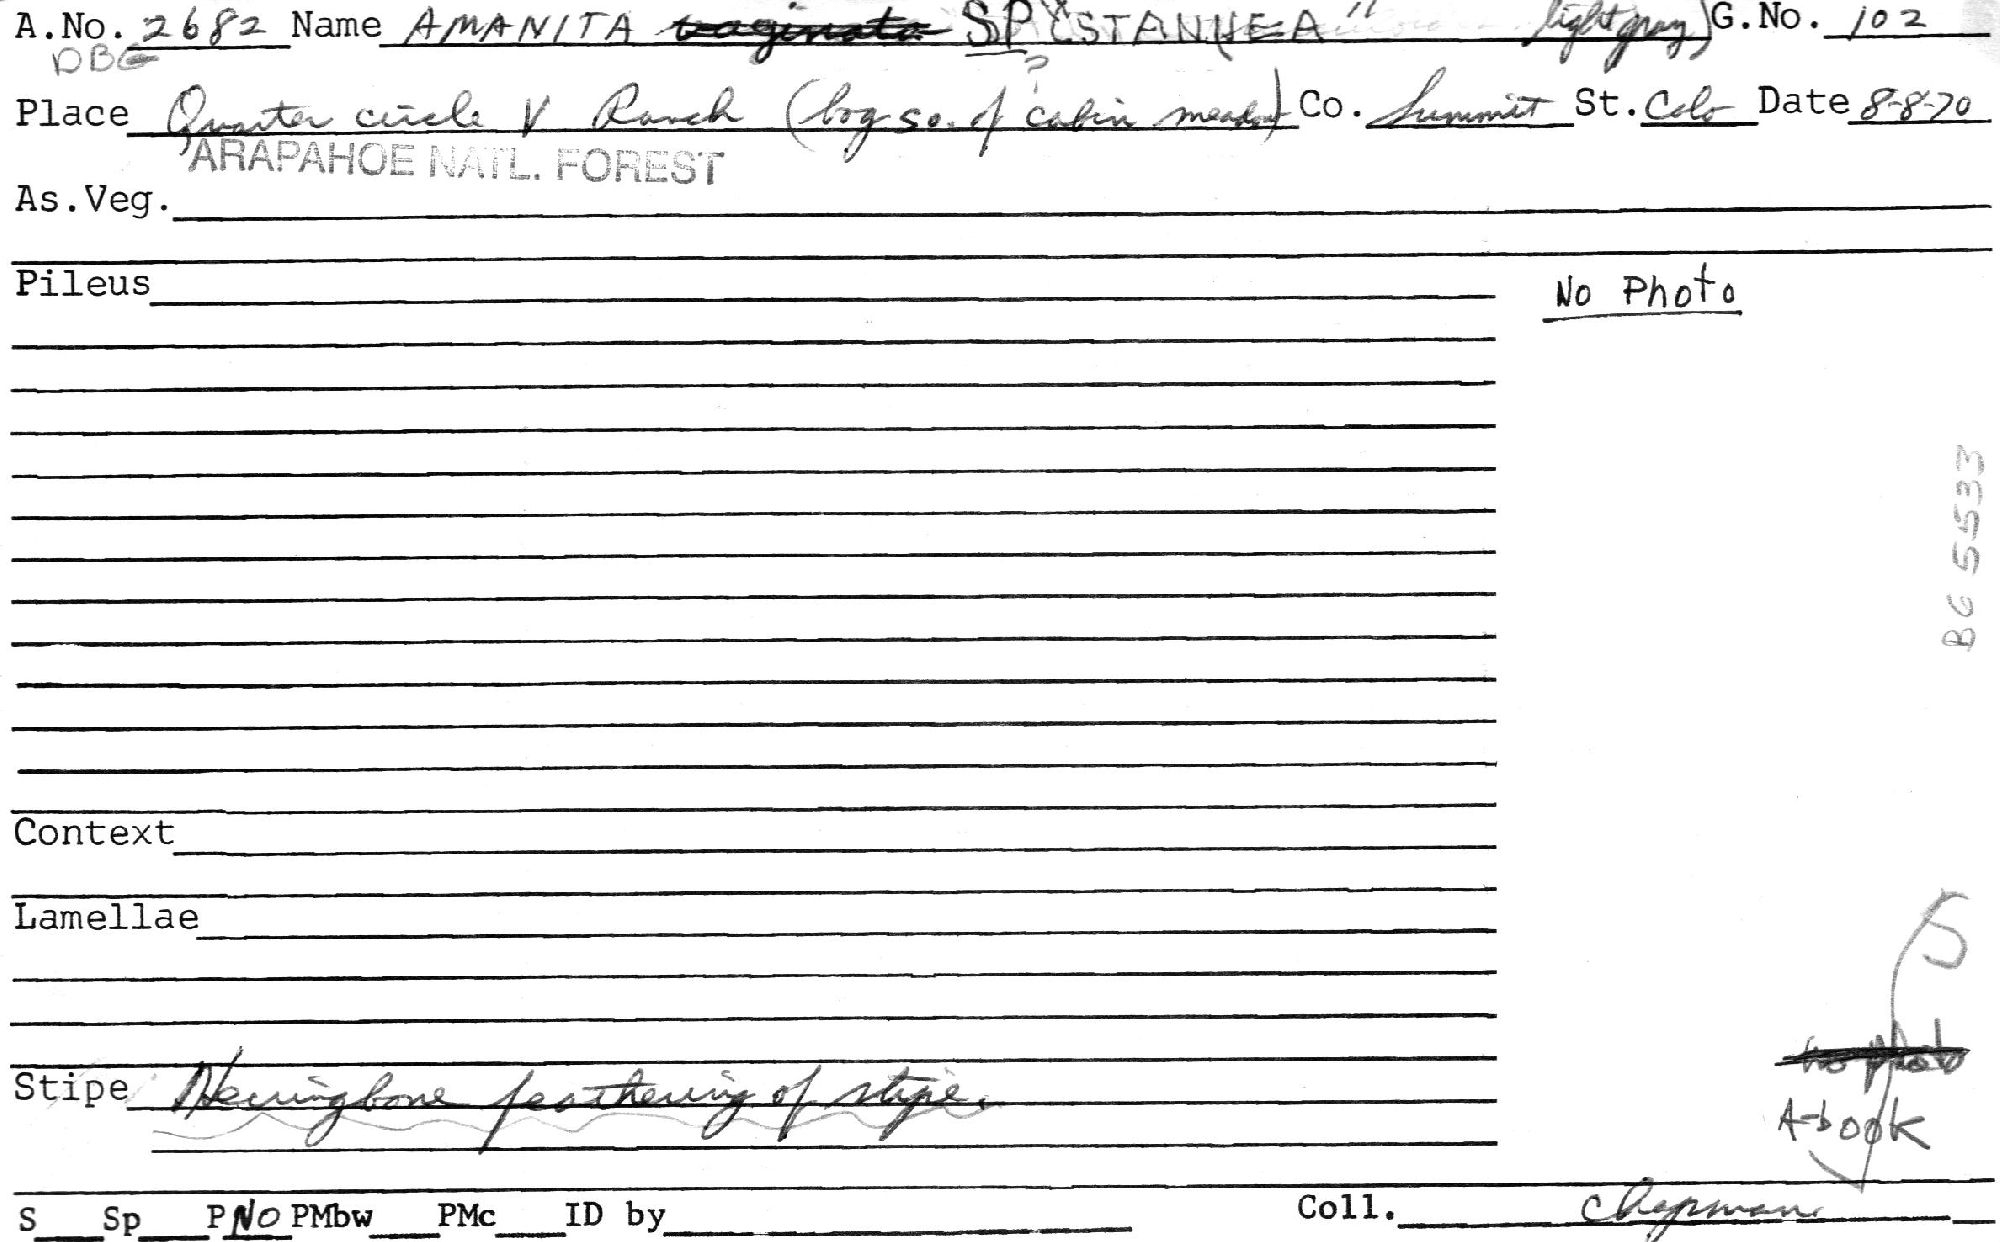 A.No. 2682 Name AMANITA vaginata SP light gray) G.No. 102
DBG ?
Place Quarter circle V Ranch (bog so. of cabin meadow) Co. Summit St. Colo Date 8-8-70
ARAPAHOE NATL. FOREST
As.Veg.
Pileus
No Photo
BG 5533
Context
Lamellae
no photo
Stipe Herringbone feathering of stipe.
A-book
S Sp P NO PMbw PMc ID by Coll. Chapman